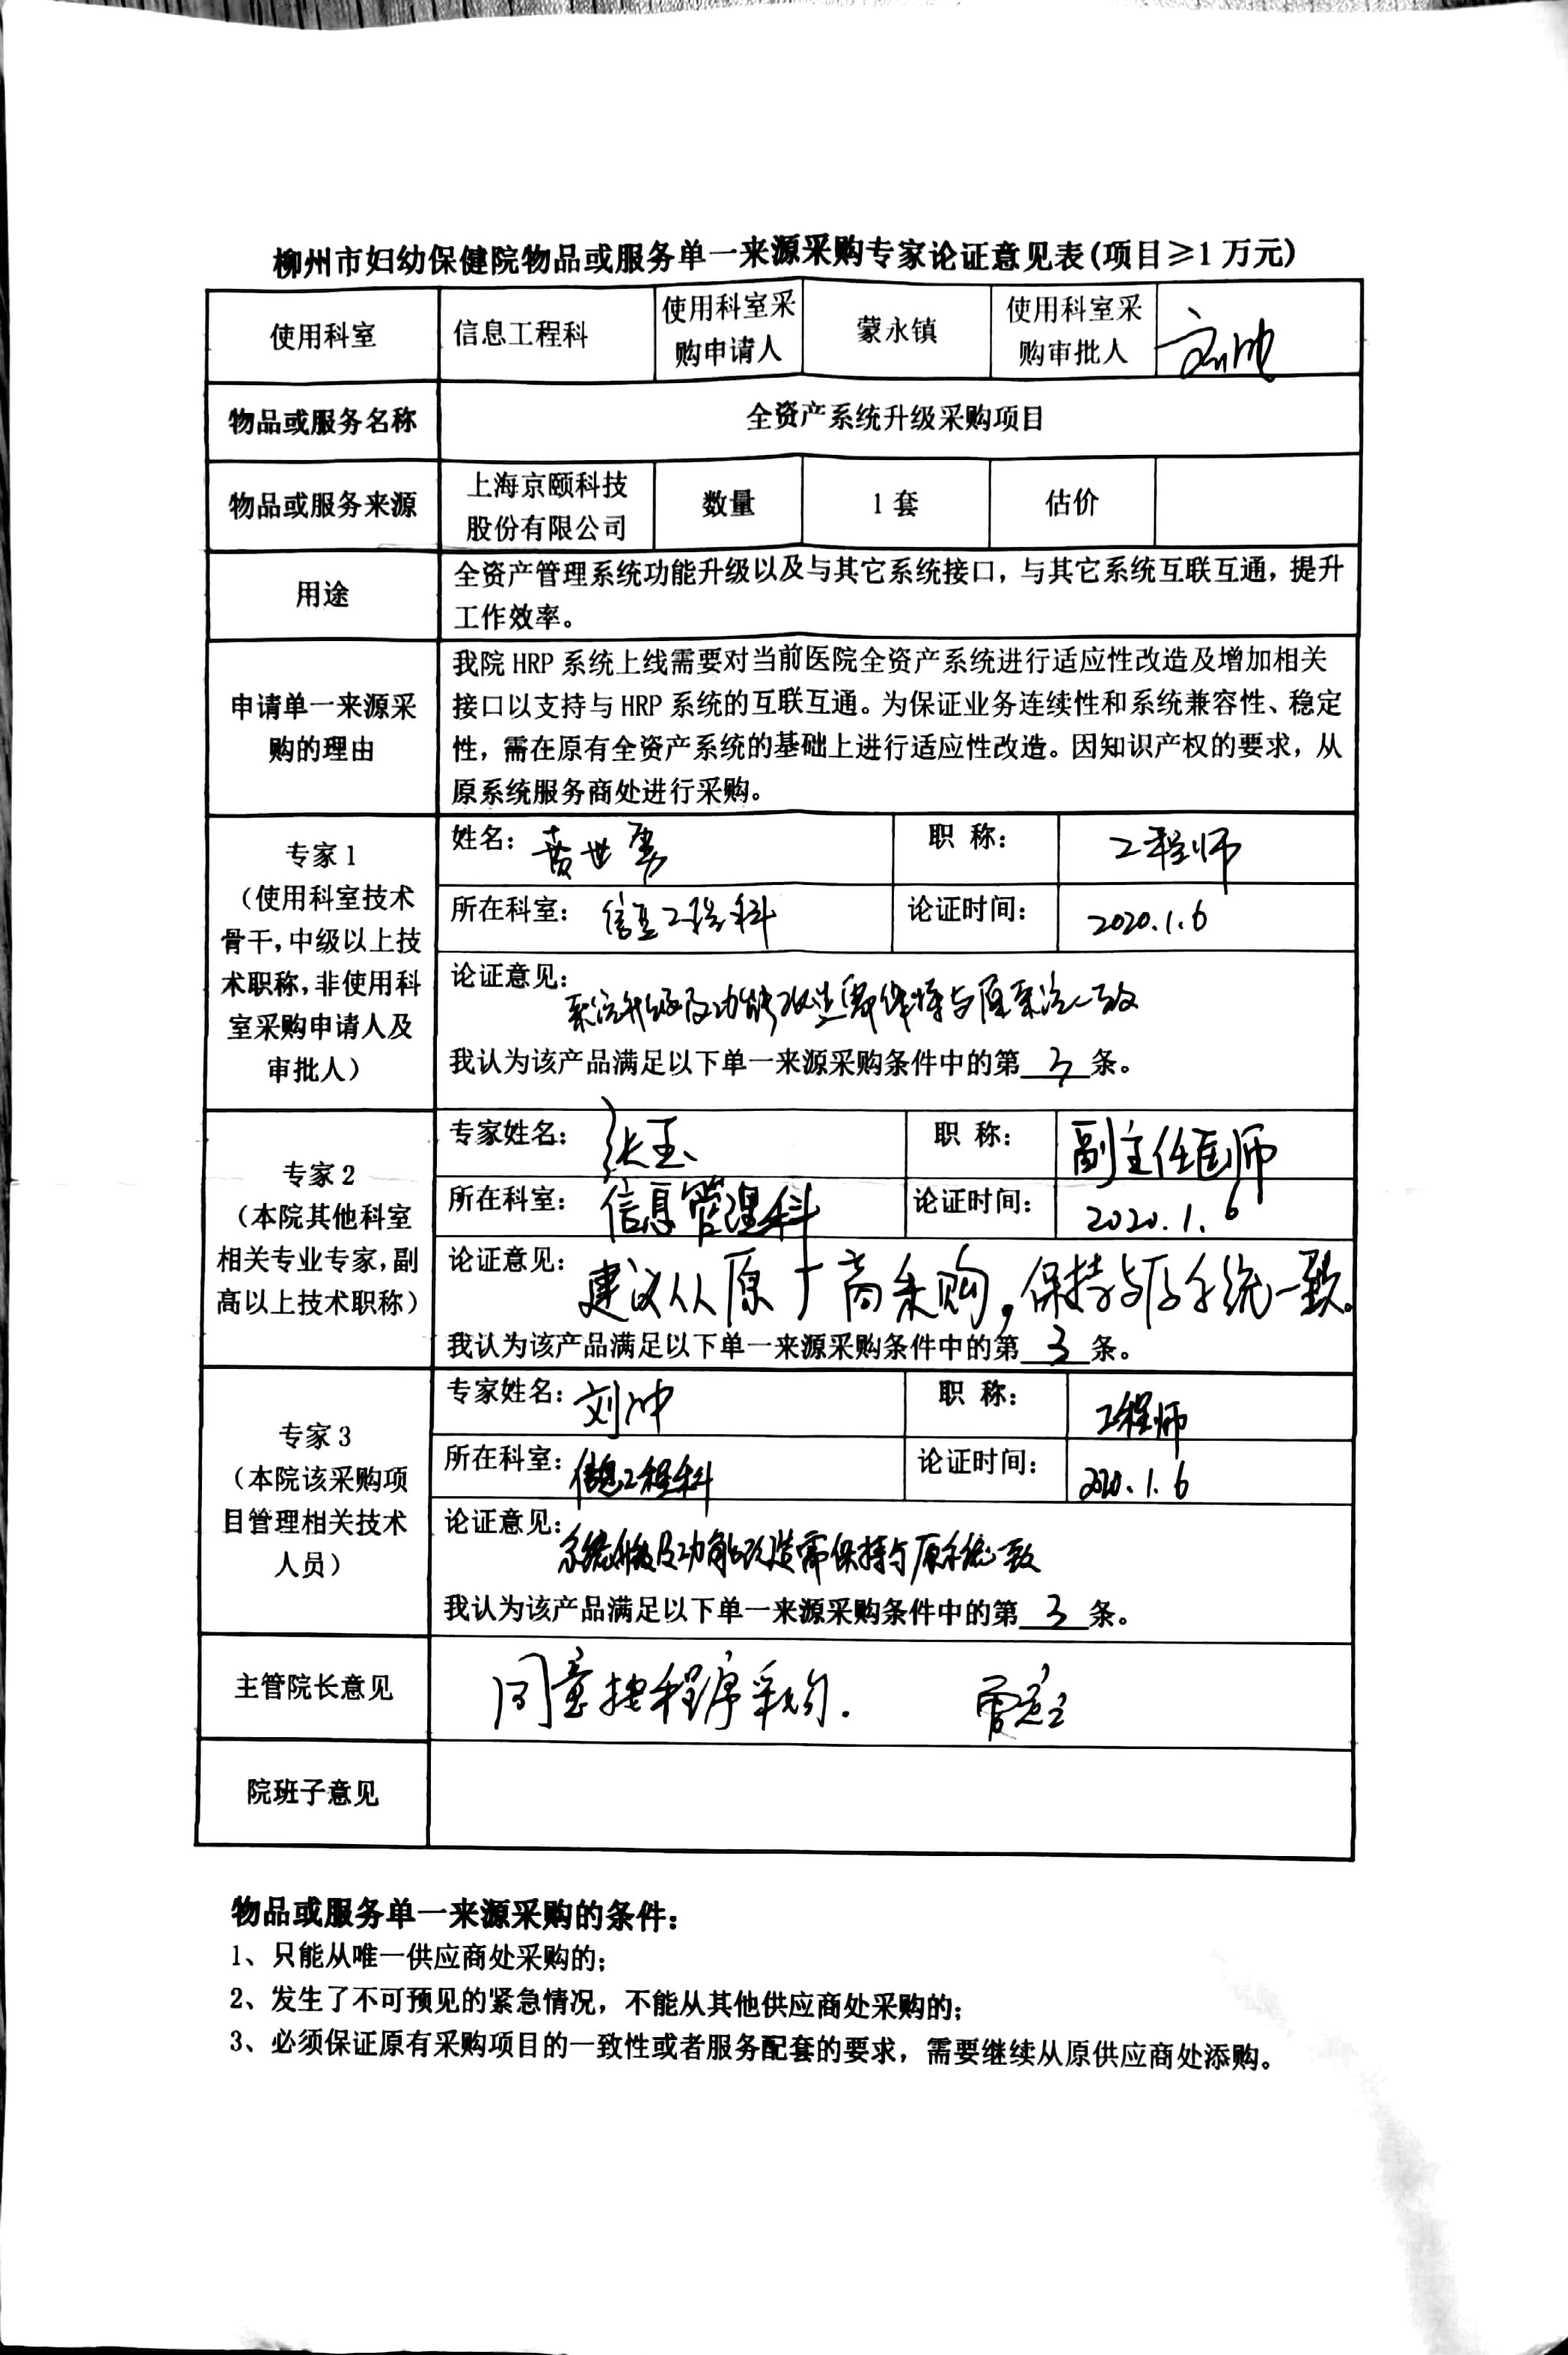 柳州市妇幼保健院物品或服务单一来源采购专家论证意见表(项目≥1万元)
使用科室 信息工程科 使用科室采购申请人 蒙永镇 使用科室采购审批人
物品或服务名称 全资产系统升级采购项目
物品或服务来源 上海京颐科技股份有限公司 数量 1套 估价
用途
全资产管理系统功能升级以及与其它系统接口，与其它系统互联互通，提升
工作效率。
申请单一来源采购的理由
我院 HRP 系统上线需要对当前医院全资产系统进行适应性改造及增加相关
接口以支持与 HRP 系统的互联互通。为保证业务连续性和系统兼容性、稳定
性，需在原有全资产系统的基础上进行适应性改造。因知识产权的要求，从
原系统服务商处进行采购。
专家1
（使用科室技术
骨干，中级以上技
术职称，非使用科
室采购申请人及
审批人）
姓名：黄世勇 职 称： 工程师
所在科室：信息工程科 论证时间： 2020.1.6
论证意见：
系统升级及功能改造需保持与原系统一致
我认为该产品满足以下单一来源采购条件中的第3条。
专家2
（本院其他科室
相关专业专家，副
高以上技术职称）
专家姓名：张玉 职 称： 副主任医师
所在科室：信息管理科 论证时间： 2020.1.6
论证意见：建议从原厂商采购，保持与原系统一致。
我认为该产品满足以下单一来源采购条件中的第3条。
专家3
（本院该采购项
目管理相关技术
人员）
专家姓名：刘冲 职 称： 工程师
所在科室：信息工程科 论证时间： 2020.1.6
论证意见：系统升级及功能改造需保持与原系统一致
我认为该产品满足以下单一来源采购条件中的第3条。
主管院长意见 同意按程序采购.
院班子意见
物品或服务单一来源采购的条件：
1、只能从唯一供应商处采购的；
2、发生了不可预见的紧急情况，不能从其他供应商处采购的；
3、必须保证原有采购项目的一致性或者服务配套的要求，需要继续从原供应商处添购。